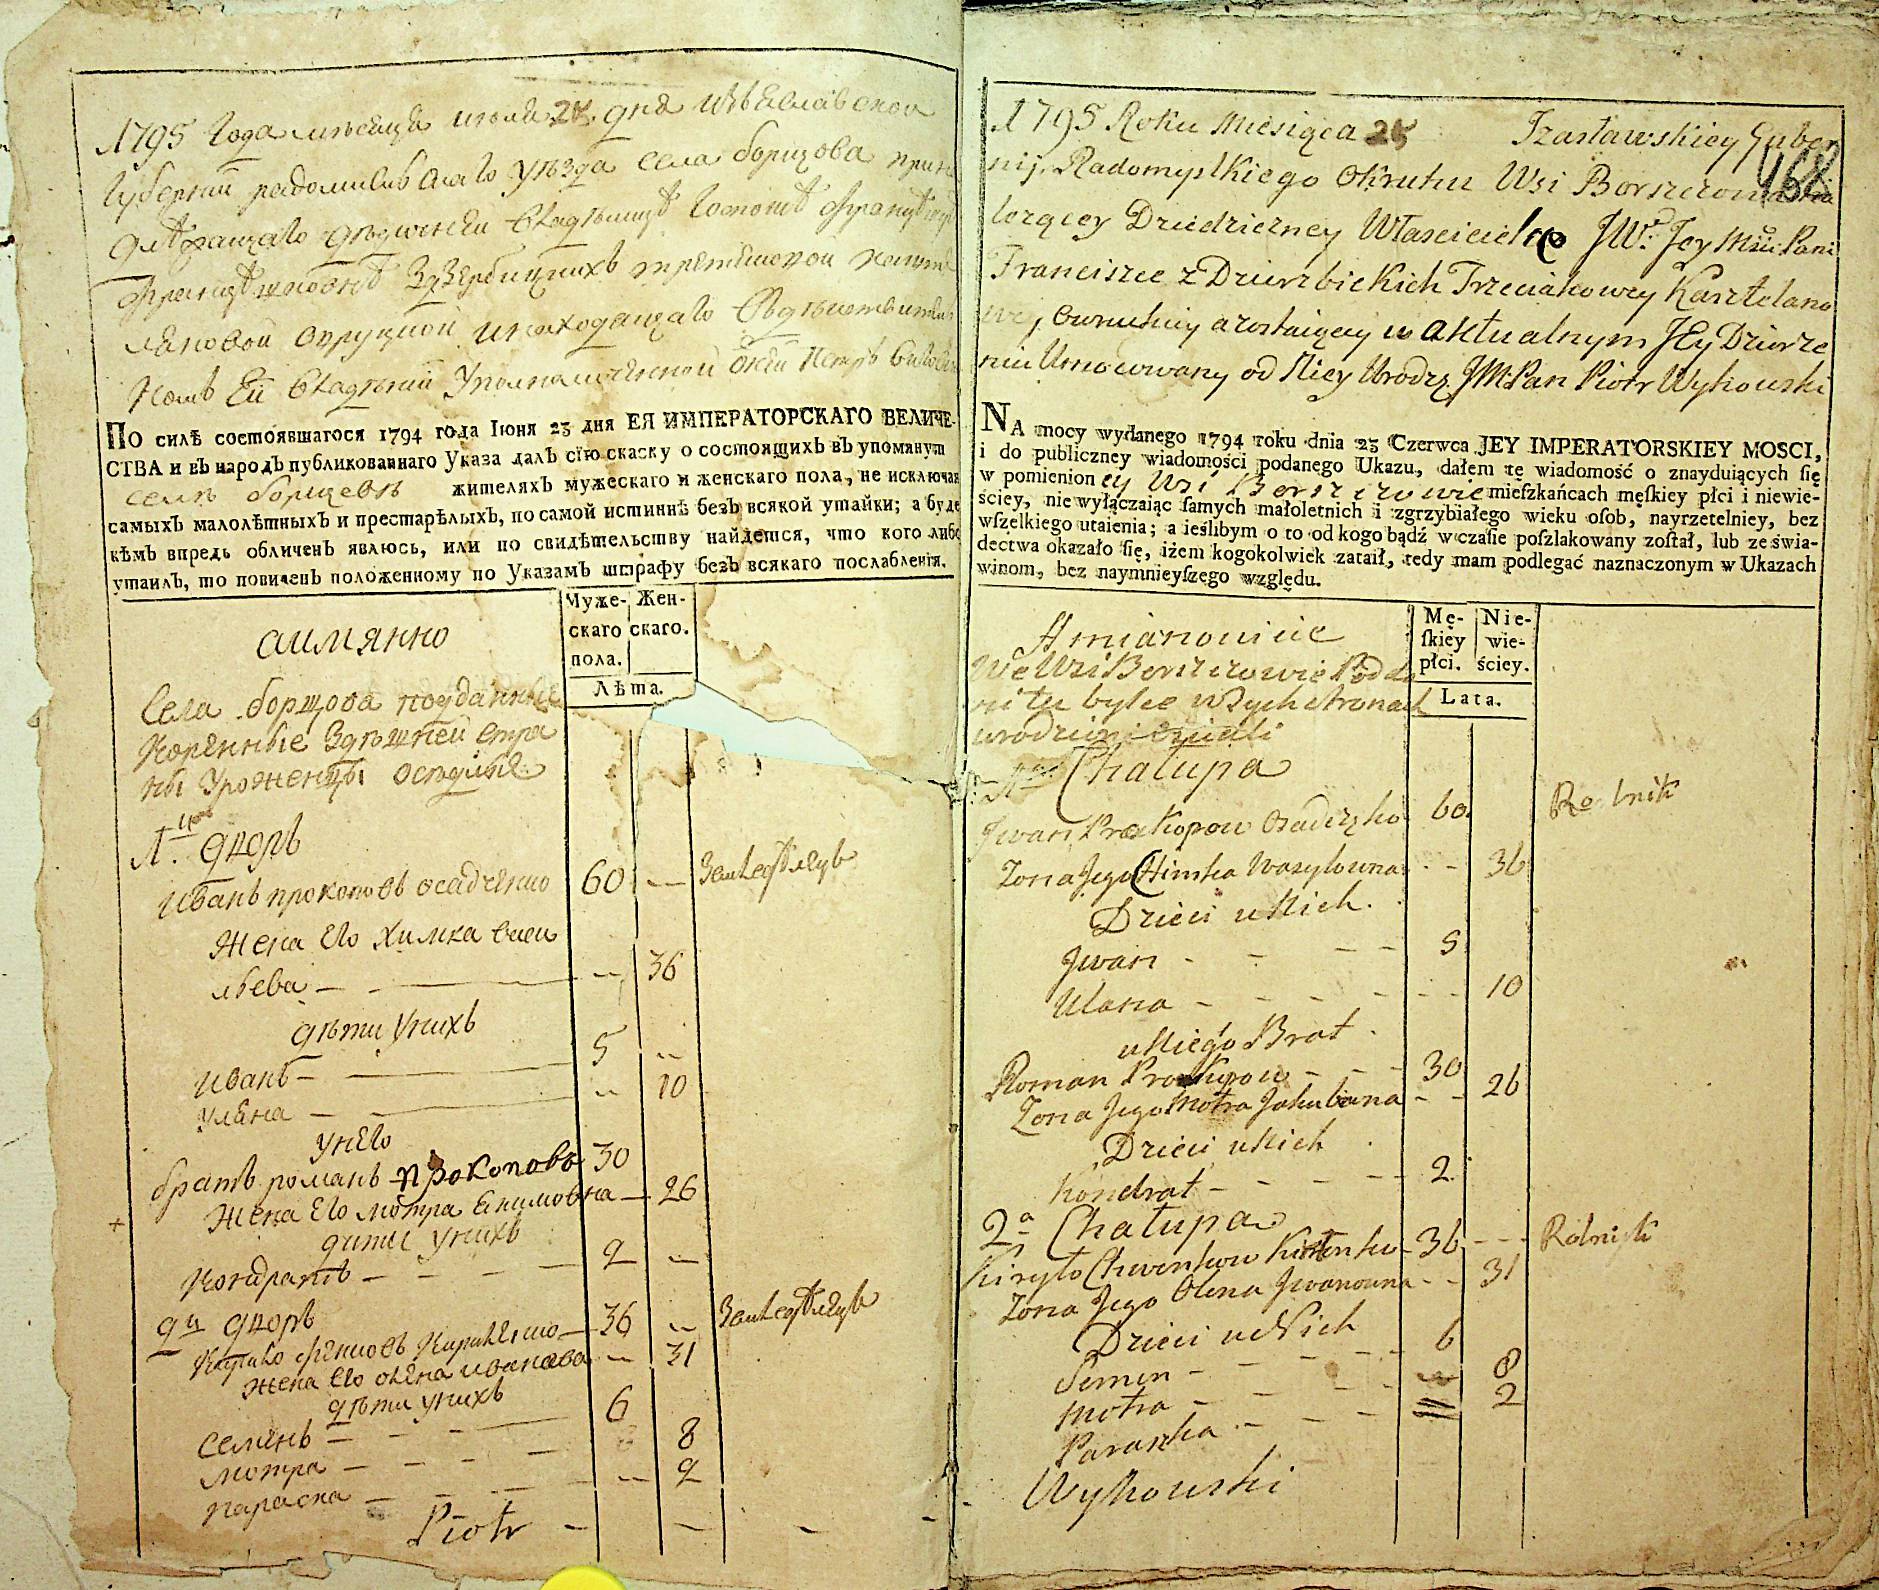 1795 Года мѣсяца июля 24 дня Изѣславской
Губернии радомисльскаго уѣзда села борщова
Францѣшковнѣ Здзербицкихъ
овруцкой
Ей владѣнии Петръ
ПО силѣ состоявшагося 1794 года Іюня 23 дня ЕЯ ИМПЕРАТОРСКАГО ВЕЛИЧЕ-
СТВА и въ народъ публикованнаго Указа далъ сїю скаску о состоящихъ въ упомянут
селѣ борщевѣ жителяхъ мужескаго и женскаго пола, не исключая
самыхъ малолѣтныхъ и престарѣлыхъ, по самой истиннѣ безъ всякой утайки; а буде
кѣмъ впредь обличенъ явлюсь, или по свидѣтельству найдется, что кого либо
утаилъ, то повиненъ положенному по Указамъ штрафу безъ всякаго послабленія.
аимянно
Муже-скаго пола.
Жен-скаго.
Лѣта.
Села борщова подданные
коренные здѣшней стра
ны уроженцы оседлые
1й дворъ
Иванъ прокоповъ осадченко 60 — Земледѣлецъ
Жена Его Химка васи
льева — — 36
дѣти унихъ
Иванъ — 5 —
Уляна — — 10
унего
братъ романъ прокоповъ 30
Жена Его мотра Екимовна — 26
дити унихъ
Кондратъ — 2 —
2й дворъ
Кирило Кириленко — 36 — Земледѣлецъ
Жена Его олена иванова — 31
дѣти унихъ
Семенъ — 6
мотра — 8
параска — 2
Piotr
1795 Roku Miesiąca 24 Izasławskiey Guber
nij Radomyslkiego Okruhu Wsi Borszczowa
lezącey Dziedziczney Włascicielce JW: Jey Mści Pani
Franciszce z Dzierzbickich Trzeciakowey Kasztelano
wey Owruckiey a zostaiącey w aktualnym Jey Dzierze
niu Umocowany od Niey Urodz. JMPan Piotr Wykowski
468
NA mocy wydanego 1794 roku dnia 23 Czerwca JEY IMPERATORSKIEY MOSCI,
i do publiczney wiadomości podanego Ukazu, dałem tę wiadomość o znayduiących się
w pomienioney Wsi Borszczowie mieſzkańcach męſkiey płci i niewie-
ściey, nie wyłączaiąc ſamych małoletnich i zgrzybiałego wieku oſob, nayrzetelniey, bez
wſzelkiego utaienia; a ieślibym o to od kogo bądź w czaſie poſzlakowany zoſtał, lub ze świa-
dectwa okazało ſię, iżem kogokolwiek zataił, tedy mam podlegać naznaczonym w Ukazach
winom, bez naymnieyſzego względu.
Amianowicie
Mę-ſkiey płci.
Nie-wie-ściey.
Lata.
We Wsi Borszczowie Podda
ni tu bylce w tych stronach
urodzeni
1sza Chałupa
Jwan Prokopow Osadczęko 60 Rolnik
Zona Jego Chimka Wasylowna - - 36
Dzieci u Nich.
Jwan - - 5
Ulana - - 10
u Niego Brat
Roman Prokopow - - 30
Zona Jego Motra Jakubowna - - 26
Dzieci u Nich
Kondrat - - 2
2a Chałupa
Kiryło 36 - - Rolnik
Zona Jego Olena Jwanowna - - 31
Dzieci u Nich
Semen - - 6
Motra - - 8
Paraszka - - 2
Wykowski